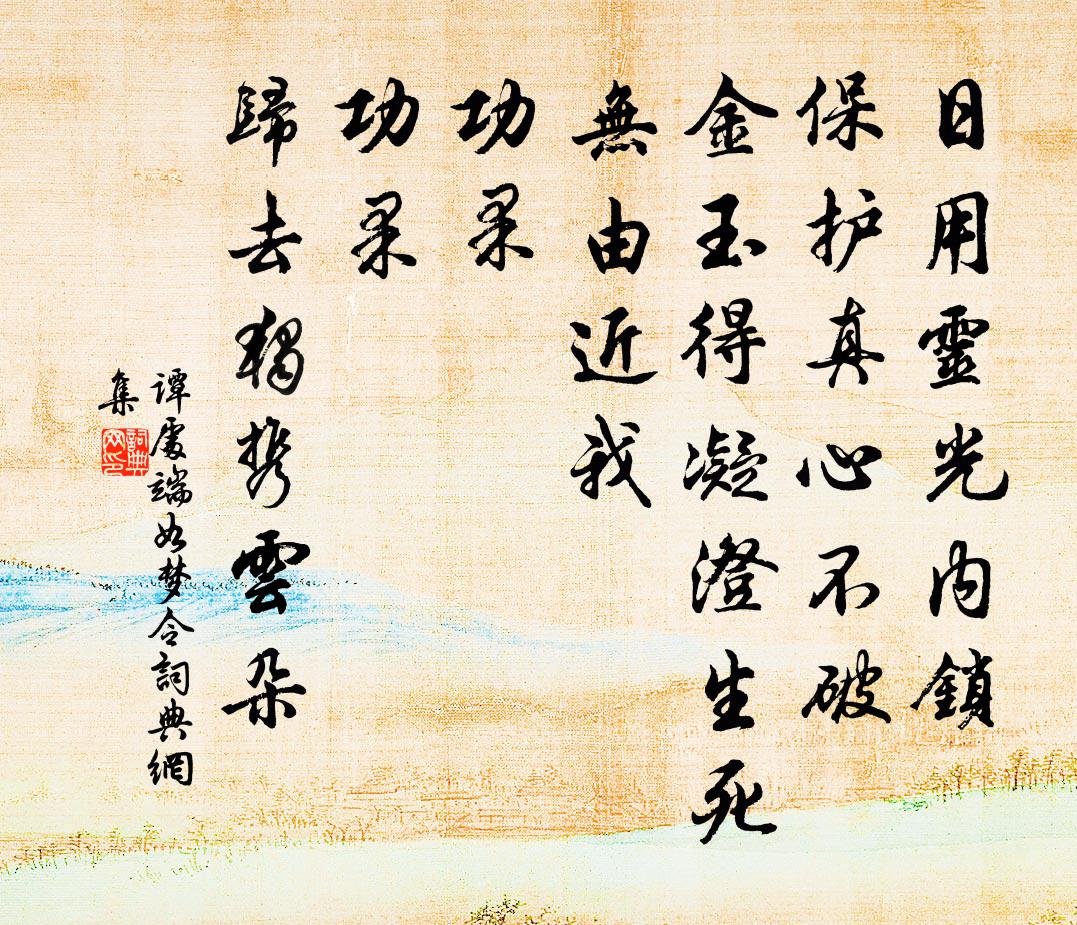 日用靈光内鎖
保护真心不破
金玉得凝澄生死
無由近我
功果
功果
歸去獨携雲朵
譚處端如梦令詞典網
集
詞典
网印